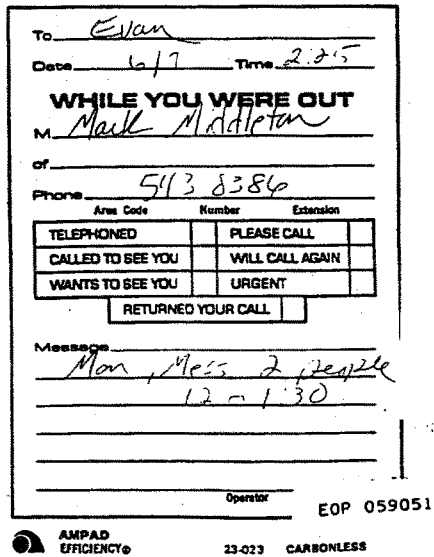 To Evan
Date 6/7 Time 2:25
WHILE YOU WERE OUT
M Mark Middleton
of
Phone 543 8386
Area Code Number Extension
TELEPHONED PLEASE CALL
CALLED TO SEE YOU WILL CALL AGAIN
WANTS TO SEE YOU URGENT
RETURNED YOUR CALL
Message
Mon, Mess 2 people
12 - 1:30
Operator
EOP 059051
AMPAD
EFFICIENCY®
23-023 CARBONLESS